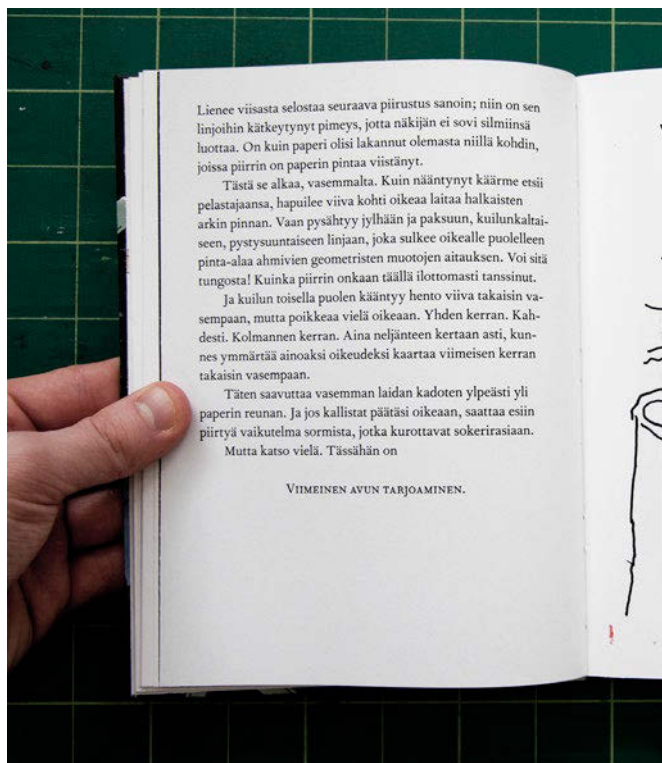 Lienee viisasta selostaa seuraava piirustus sanoin; niin on sen
linjoihin kätkeytynyt pimeys, jotta näkijän ei sovi silmiinsä
luottaa. On kuin paperi olisi lakannut olemasta niillä kohdin,
joissa piirrin on paperin pintaa viistänyt.
Tästä se alkaa, vasemmalta. Kuin nääntynyt käärme etsii
pelastajaansa, hapuilee viiva kohti oikeaa laitaa halkaisten
arkin pinnan. Vaan pysähtyy jylhään ja paksuun, kuilunkaltai-
seen, pystysuuntaiseen linjaan, joka sulkee oikealle puolelleen
pinta-alaa ahmivien geometristen muotojen aitauksen. Voi sitä
tungosta! Kuinka piirrin onkaan täällä ilottomasti tanssinut.
Ja kuilun toisella puolen kääntyy hento viiva takaisin va-
sempaan, mutta poikkeaa vielä oikeaan. Yhden kerran. Kah-
desti. Kolmannen kerran. Aina neljänteen kertaan asti, kun-
nes ymmärtää ainoaksi oikeudeksi kaartaa viimeisen kerran
takaisin vasempaan.
Täten saavuttaa vasemman laidan kadoten ylpeästi yli
paperin reunan. Ja jos kallistat päätäsi oikeaan, saattaa esiin
piirtyä vaikutelma sormista, jotka kurottavat sokerirasiaan.
Mutta katso vielä. Tässähän on
VIIMEINEN AVUN TARJOAMINEN.